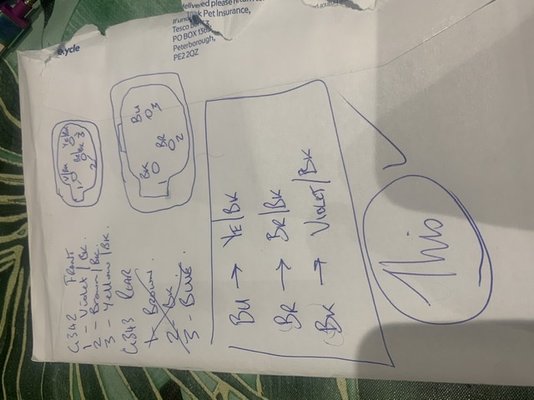 delivered please return
Tesco
Pet Insurance,
PO BOX
Peterborough,
PE2 2QZ
G342 FRONT
1 - Violet/BK.
2 - Brown/BK
3 - Yellow/BK.
G343 REAR
1 - Brown.
2 - BK
3 - Blue.
V/BK
YE/BK
BR/BK
1
2
3
BK
BU
BR
1
2
3
BU → YE/BK
BR → BR/BK
BK → VIOLET/BK
This